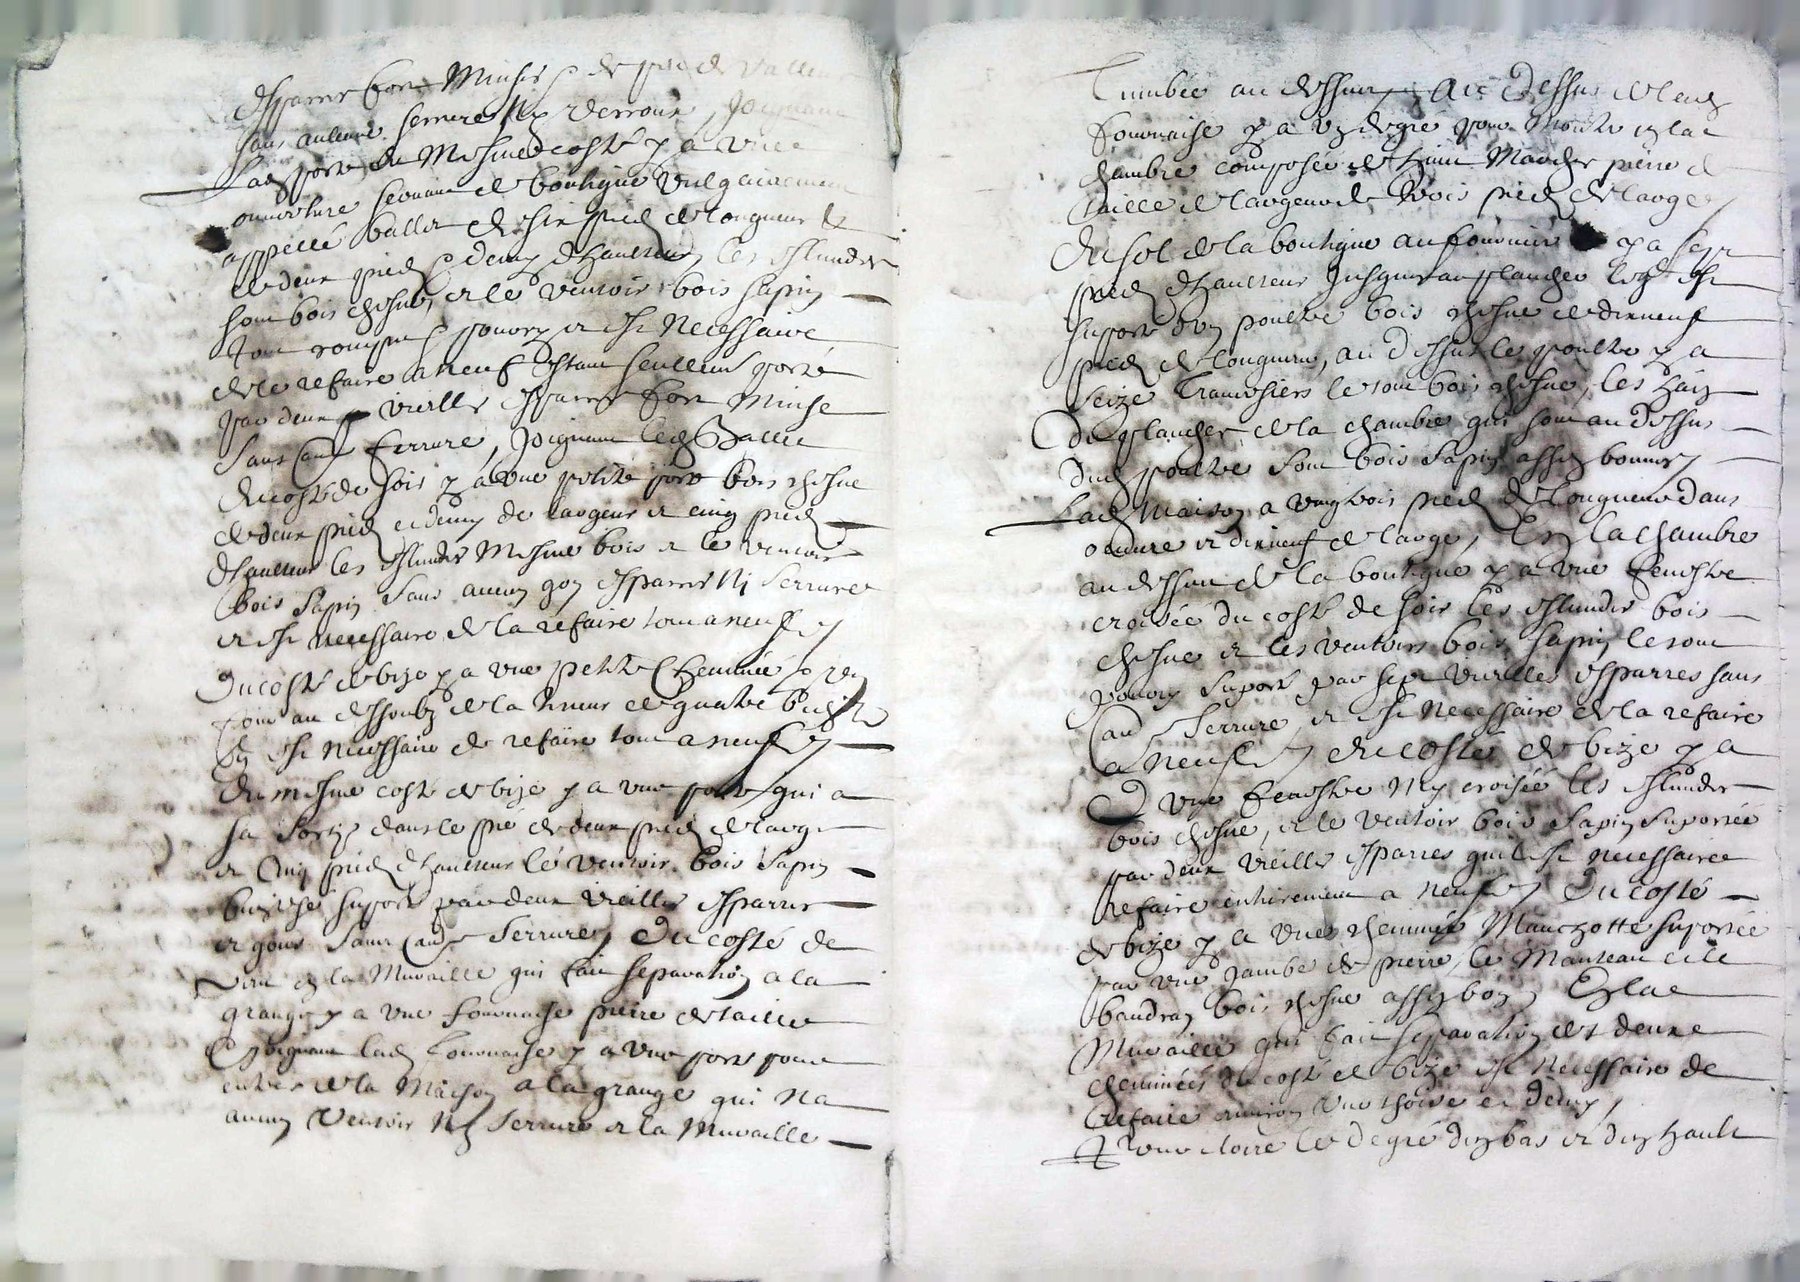 esparres fort minses de peu de valleur
sans aulcune serrure ny verroux, Joignant
Lad porte du mesme costé y a une
ouverture servant de boutique vulgairement
appellé ballet de six pied de longueur &
de deux pied & demy d'haulteur, les eslundes
sont bois chesne, et le ventoir bois sapin
tout rompu pourry et est necessaire
de le refaire a neuf estant seullement porté
par deux vieilles esparres fort minse
sans serrure, Joignant led Ballet
du costé de soir y a une petite porte bois chesne
de deux pied et demy de largeur et cinq pied
d'haulteur les eslundes mesme bois et le ventoir
bois sapin sans aucun gon esparres ny serrure
et est necessaire de la refaire tout a neuf
Du costé de bize y a une petite cheminée
au dessoubz de la de quatre
est necessaire de refaire tout a neuf
du mesme costé de bize y a une porte qui a
sa sortye dans le pré de deux pied de large
et cinq pied d'haulteur le ventoir bois sapin
suporté par deux vieilles esparres
et gons sans serrure, Du costé de
vent en la muraille qui fait separation a la
grange y a une fournaise pierre de taille
Joignant lad fournaise y a une porte pour
entrer de la maison a la grange qui n'a
aucun ventoir ny serrure et la muraille
tumbée au dessus, Au dessus de lad
fournaise y a un degré pour monter en la
chambre composée de huit marches pierre de
taille de largeur de trois pied de large
Du sol de la boutique au y a sept
pied d'haulteur jusques au plancher lequel est
suporté d'un poultre bois chesne de dixneuf
pied de longueur, au dessus le poultre y a
seize traversiers le tout bois chesne, les haiz
du plancher de la chambre qui sont au dessus
dud poultre sont bois sapin assez bonne
Lad maison a vingtrois pied de longueur dans
œuvre et dixneuf de large, En la chambre
au dessus de la boutique y a une fenestre
croisée du costé de soir les eslundes bois
chesne et les ventoirs bois sapin le tout
pourry suporté par sept vieilles esparres sans
serrure, et est necessaire de la refaire
a neuf, du costé de bize y a
une fenestre my croisée les eslundes
bois chesne, et le ventoir bois sapin suportée
par deux vieilles esparres qu'il est necessaire
refaire entierement a neuf, Du costé
de bize y a une cheminée suportée
par une jambe de pierre, le manteau et le
bois chesne assez bon, En la
muraille qui fait separation des deux
cheminées du costé de bize est necessaire de
refaire environ une thoise et demy,
le degré d'en bas et d'en hault